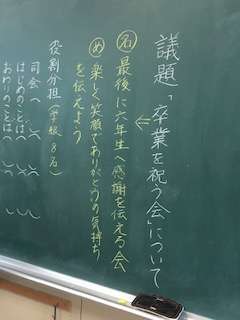 議題「卒業を祝う会」について
㊔最後に六年生へ感謝を伝える会
め楽しく笑顔でありがとうの気持ち
を伝えよう
役割分担(学級8名)
司会へ
はじめのことばへ
おわりのことばへ